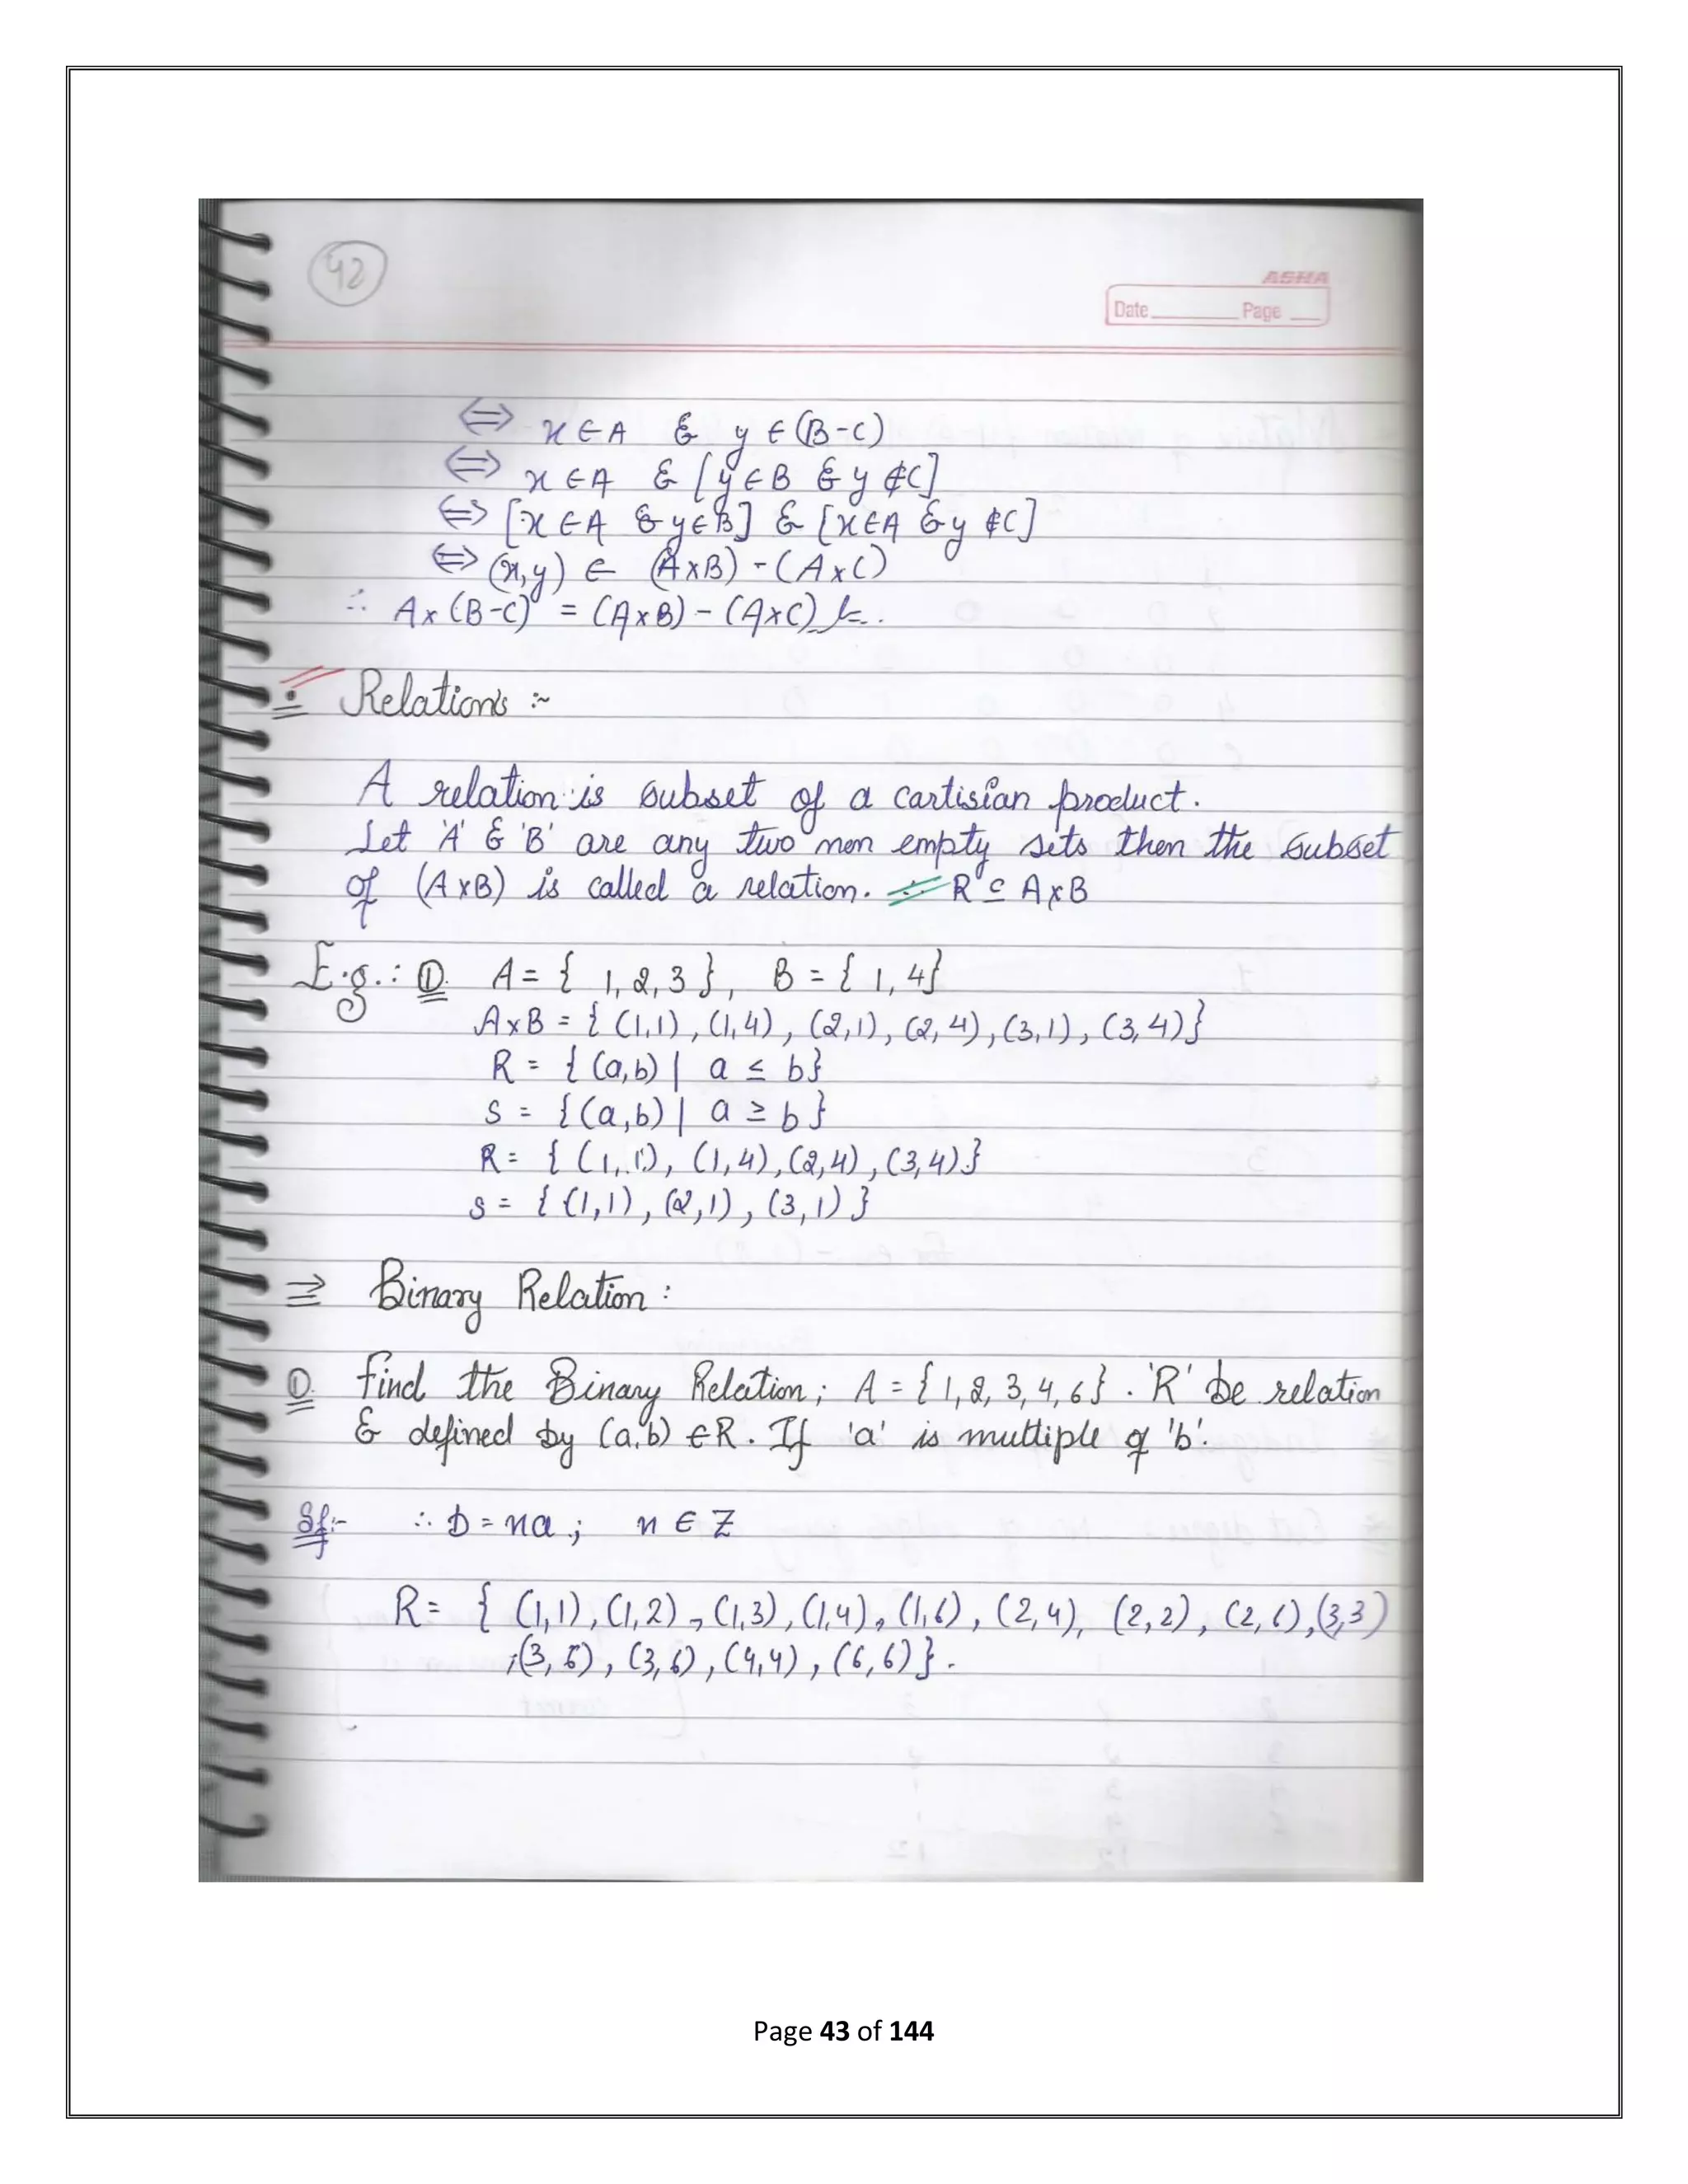 42
ASHA
Date Page
⇔ x ∈ A & y ∈ (B-C)
⇔ x ∈ A & [y ∈ B & y ∉ C]
⇔ [x ∈ A & y ∈ B] & [x ∈ A & y ∉ C]
⇔ (x,y) ∈ (A×B) - (A×C)
∴ A×(B-C) = (A×B) - (A×C)
Relations :-
A relation is subset of a cartisian product.
Let 'A' & 'B' are any two non empty sets then the subset
of (A×B) is called a relation. ∴ R ⊆ A×B
E.g.: ①. A = { 1, 2, 3 }, B = { 1, 4}
A×B = { (1,1), (1,4), (2,1), (2,4), (3,1), (3,4)}
R = { (a,b) | a ≤ b}
S = {(a,b) | a ≥ b}
R = { (1,1), (1,4), (2,4), (3,4)}
S = { (1,1), (2,1), (3,1) }
⇒ Binary Relation :
①. Find the Binary Relation; A = { 1, 2, 3, 4, 6}. 'R' be relation
& defined by (a,b) ∈ R. If 'a' is multiple of 'b'.
Sol:- ∴ b = na ; n ∈ Z
R = { (1,1), (1,2), (1,3), (1,4), (1,6), (2,4), (2,2), (2,6), (3,3)
, (3,6), (4,4), (6,6)}.
Page 43 of 144